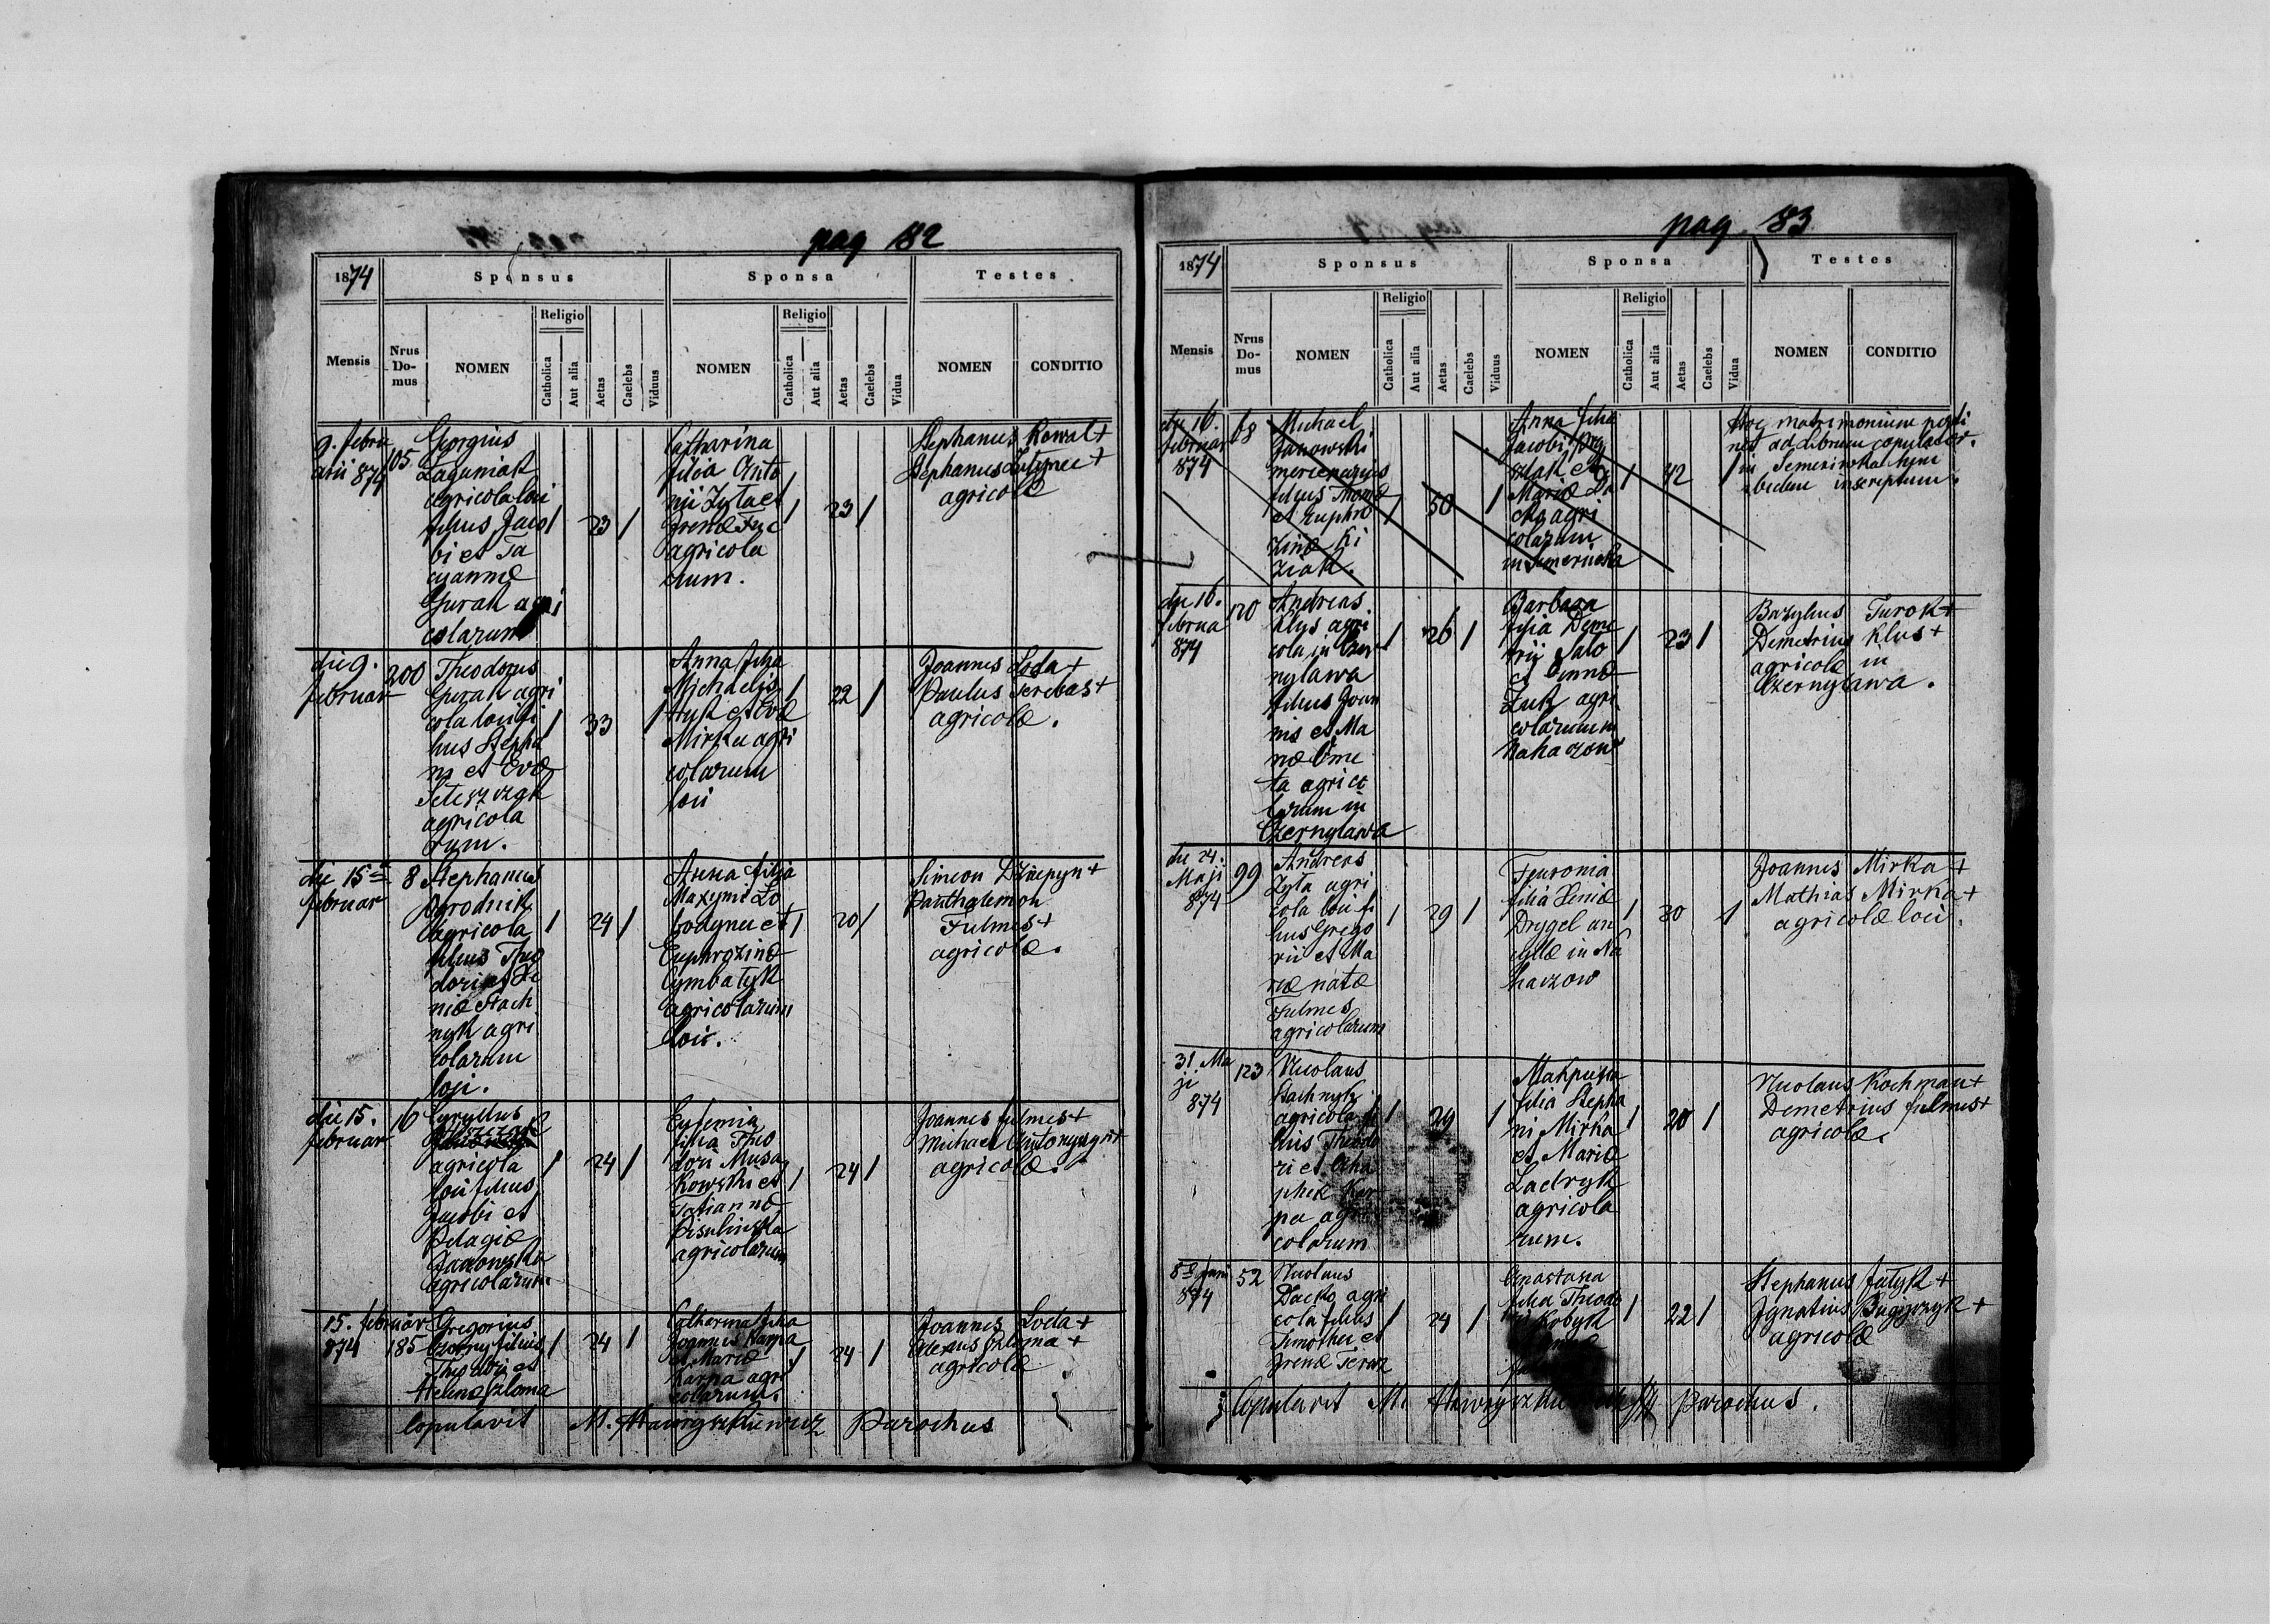 pag 82
1874 Sponsus Sponsa Testes
Mensis Nrus Domus NOMEN Religio Catholica Aut alia Aetas Caelebs Viduus NOMEN Religio Catholica Aut alia Aetas Caelebs Vidua NOMEN CONDITIO
9. febru
arii 874
105
Georgius
Laguniak
agricola loci
filius Jaco
bi et Ta
cyannæ
Gurak agri
colarum
/ 23 /
Catharina
filia Anto
nii Zyla et
Irenæ
agricola
rum.
/ 23 /
Stephanus Kowal +
Stephanus +
agricolæ
die 9.
februar
200
Theodorus
Gurak agri
cola loci fi
lius Stepha
ni et Evæ
agricola
rum.
/ 33 /
Anna filia
Michaelis
Huk et Evæ
Mirka agri
colarum
loci
/ 22 /
Joannes Loda +
Paulus Terebas +
agricolæ.
die 15
februar
8
Stephanus
Ogrodnik
agricola
filius Theo
dori et Xe
niæ Stach
nyk agri
colarum
loci.
/ 24 /
Anna filia
Maxymi Lo
bodynu et
Euphrozinæ
Cymbalyk
agricolarum
loci.
/ 20 /
Simeon Dziepyn +
Panthalemon
Fulmes +
agricolæ.
die 15.
februar
16
Cyryllus
agricola
loci filius
Jacobi et
Pelagiæ
Janowska
agricolarum.
/ 24 /
Eufemia
filia Theo
dori Musa
kowski et
Tatiannæ
Pisulinska
agricolarum
/ 24 /
Joannes fulmes +
Michael +
agricolæ.
15. februar
874
185
Gregorius
Czorny filius
Theodori et
Helenæ Szloma
/ 24 /
Catharina filia
Joannis Karpa
et Mariæ
Karpa agri
colarum.
/ 24 /
Joannes Loda +
Alexius Szloma +
agricolæ
Copulavit M. Hawryszkiewicz Parochus
pag 83
1874 Sponsus Sponsa Testes
Mensis Nrus Domus NOMEN Religio Catholica Aut alia Aetas Caelebs Viduus NOMEN Religio Catholica Aut alia Aetas Caelebs Vidua NOMEN CONDITIO
die 16.
februar
874
Michael
Janowski
mercenarius
filius Thomæ
et Euphro
zinæ Ki
ziak.
/ 50 /
Anna filia
Jacobi
et
Mariæ
agri
colarum
in Semeriwka
/ 42 /
Hoc matrimonium perti
net ad librum copulator.
in Semeriwka hinc
ibidem inscriptum.
die 16.
februa
874
120
Andreas
Klys agri
cola in Czer
nylawa
filius Joan
nis et Ma
riæ Ome
ta agrico
larum in
Czernylawa
/ 26 /
Barbara
filia Deme
trii Salo
et Annæ
Zuk agri
colarum in
Nahaczow
/ 23 /
Bazylius Turok +
Demetrius Klus +
agricolæ in
Czernylawa.
die 24.
Maji
874
99
Andreas
Zyla agri
cola loci fi
lius Grego
rii et Ma
riæ natæ
Fulmes
agricolarum
/ 29 /
Fevronia
filia Xeniæ
Drygel an
cyllæ in Na
haczow
/ 30 /
Joannes Mirka +
Mathias Mirka +
agricolæ loci.
31. Ma
ji
874
123
Nicolaus
Stachnyk
agricola fi
lius Theodo
ri et Aha
phiæ Kar
pa agri
colarum
/ 29 /
filia Stepha
ni Mirka
et Mariæ
Ladryk
agricola
rum.
/ 20 /
Nicolaus Kochman +
Demetrius fulmes +
agricolæ.
874
52
Nicolaus
Dacko agri
cola filius
Timothei et
Irenæ
/ 24 /
Anastasia
filia Theodo
ri Kobyk
/ 22 /
Stephanus Jatyk +
Ignatius +
agricolæ
Copulavit M. Parochus.